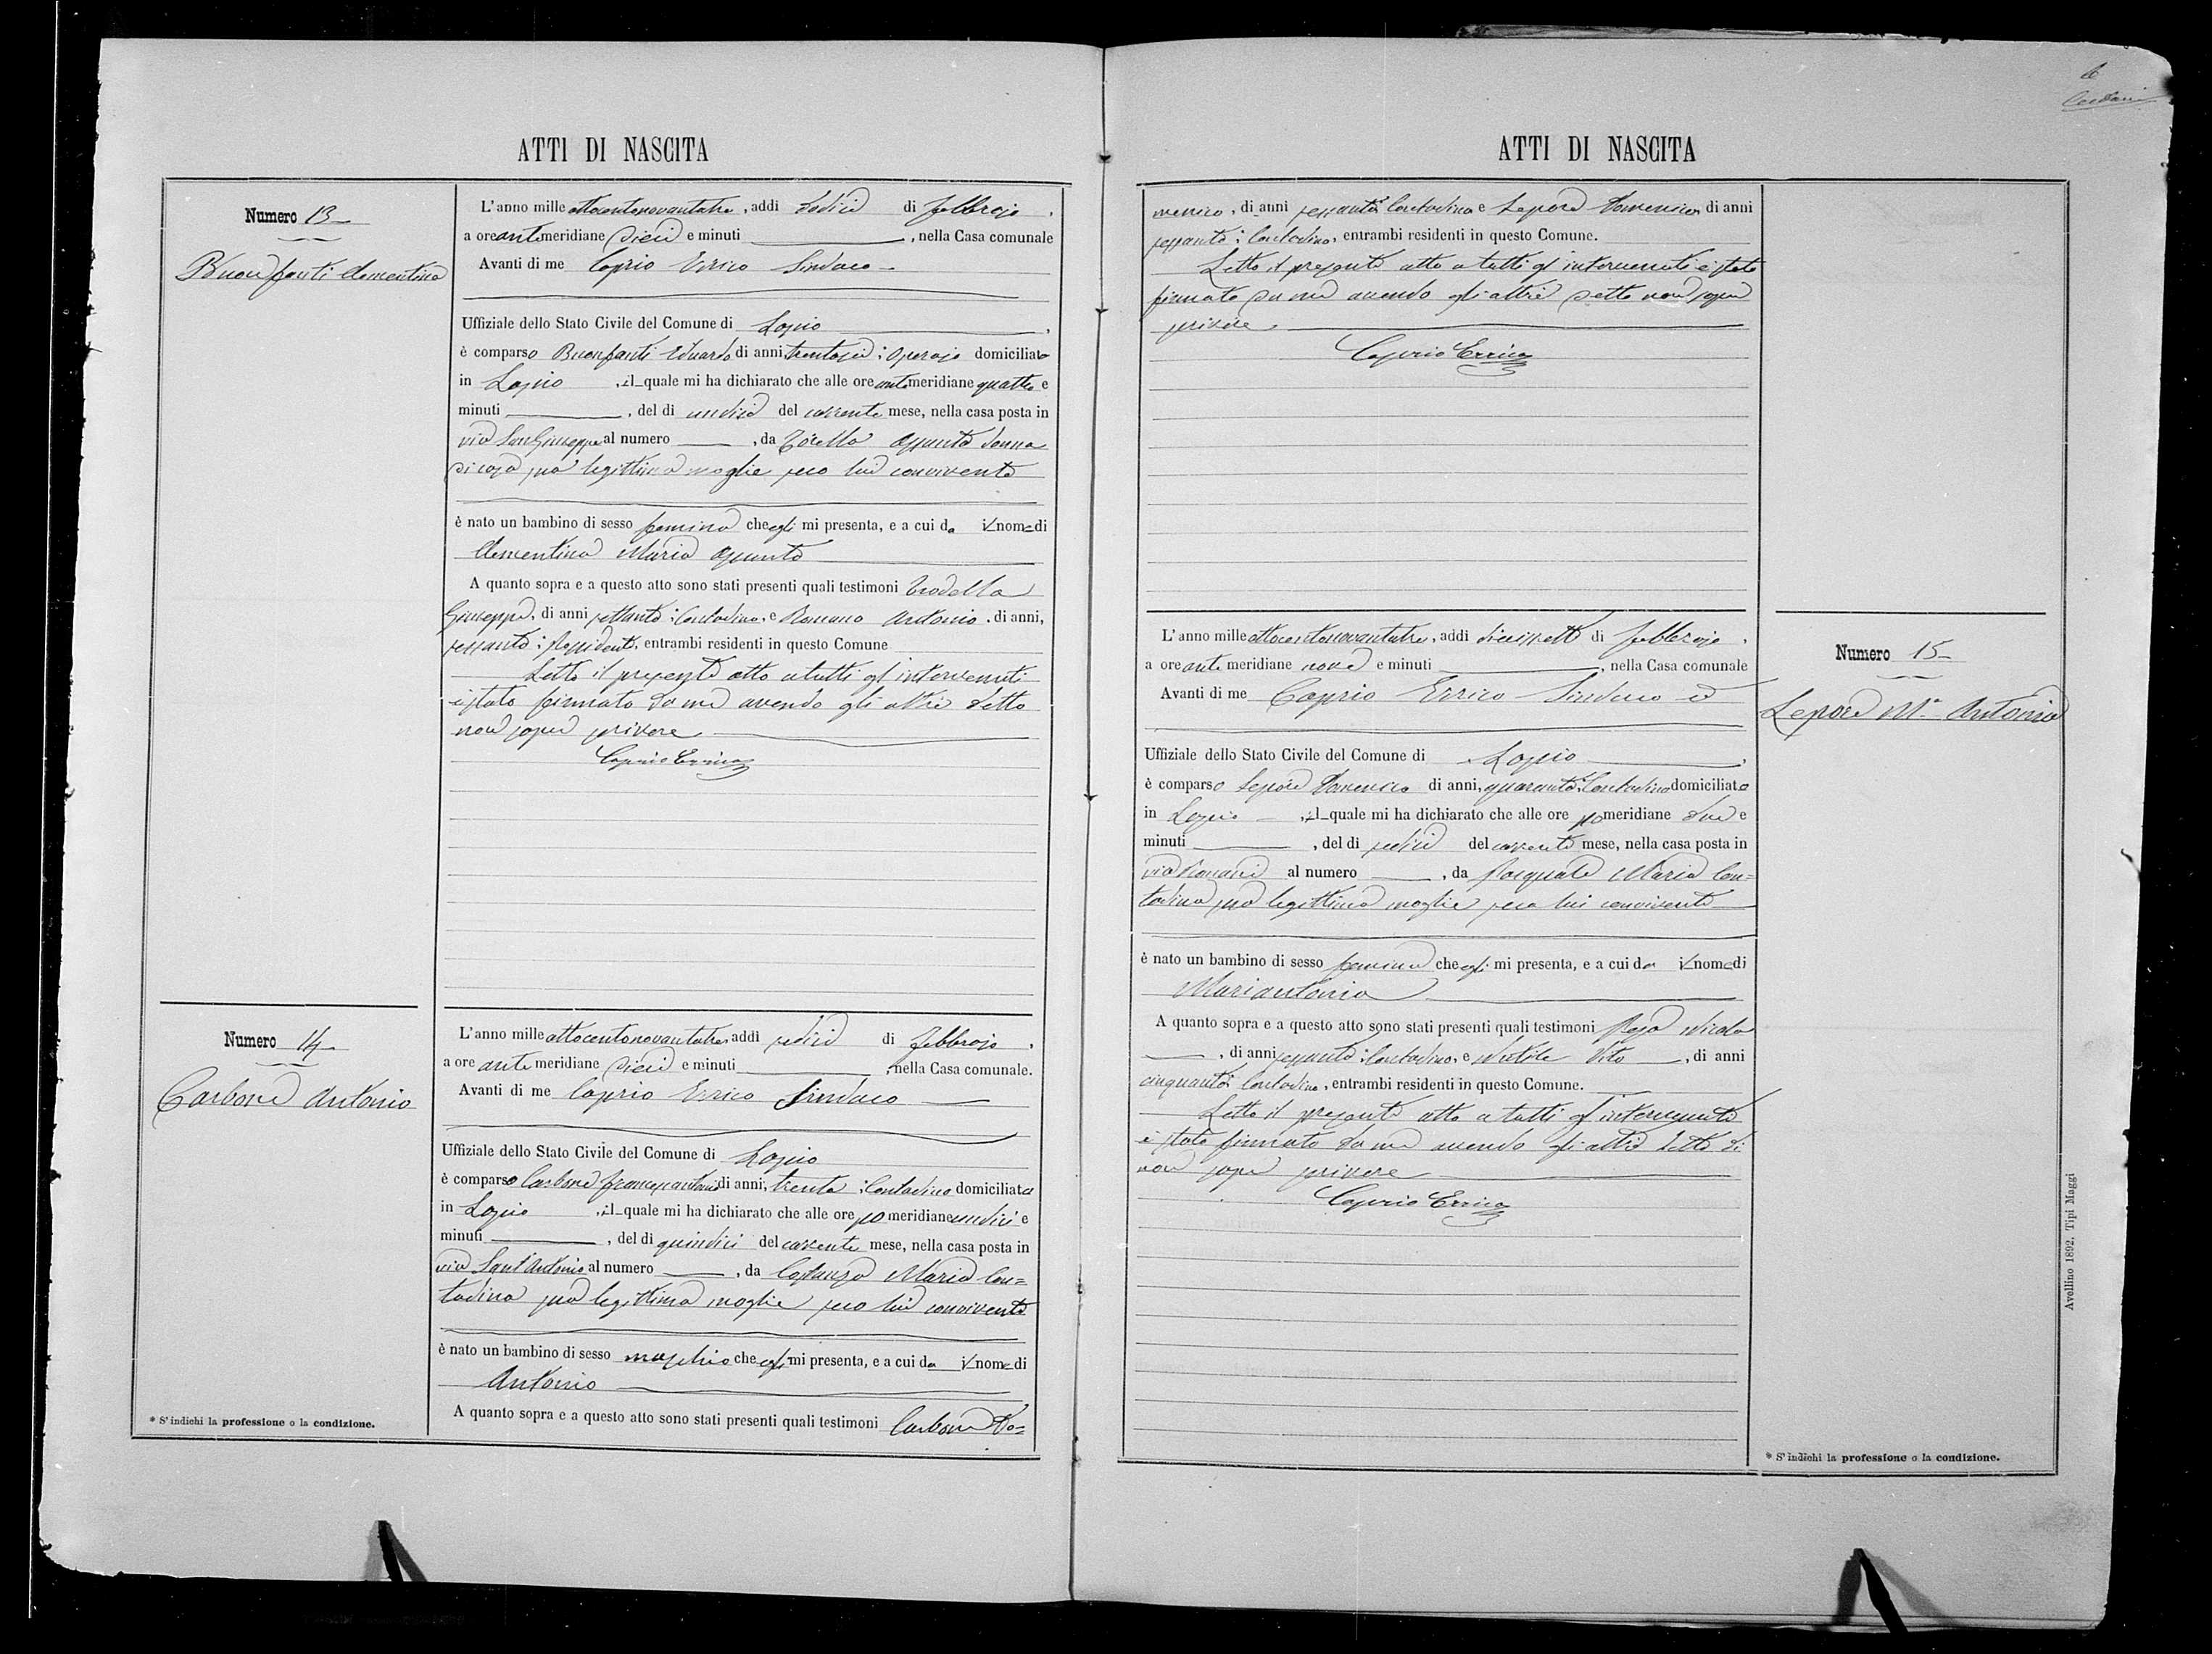 ATTI DI NASCITA
Numero 13
Buonfanti Clementina
L'anno milleottocentonovantatre, addi dodici di febbrajo,
a ore antimeridiane dieci e minuti, nella Casa comunale
Avanti di me Caprio Errico Sindaco
Uffiziale dello Stato Civile del Comune di Lapio,
è comparso Buonfanti Eduardo di anni trentasei; operajo domiciliato
in Lapio, il quale mi ha dichiarato che alle ore antimeridiane quattro e
minuti, del dì undici del corrente mese, nella casa posta in
via San Giuseppe al numero, da Assunta donna
di casa sua legittima moglie seco lui convivente
è nato un bambino di sesso femina che egli mi presenta, e a cui da il nome di
Clementina Maria Assunta
A quanto sopra e a questo atto sono stati presenti quali testimoni Trodella
Giuseppe, di anni settanta; Contadino, e Romano Antonio, di anni,
sessanta; Possidente, entrambi residenti in questo Comune
Letto il presente atto a tutti gl'intervenuti
è stato firmato da me avendo gli altri detto
non saper scrivere
Caprio Errico
Numero 14
Carbone Antonio
L'anno milleottocentonovantatre, addì sedici di febbrajo,
a ore antimeridiane dieci e minuti, nella Casa comunale.
Avanti di me Caprio Errico Sindaco
Uffiziale dello Stato Civile del Comune di Lapio
è comparso Carbone Francescantonio di anni, trenta; Contadino domiciliato
in Lapio, il quale mi ha dichiarato che alle ore pomeridiane undici e
minuti, del dì quindici del corrente mese, nella casa posta in
via Sant'Antonio al numero, da Costanza Maria Con=
tadina sua legittima moglie seco lui convivente
è nato un bambino di sesso maschio che egli mi presenta, e a cui da il nome di
Antonio
A quanto sopra e a questo atto sono stati presenti quali testimoni Carbone Do=
* S'indichi la professione o la condizione.
ATTI DI NASCITA
menico, di anni sessanta; Contadino e Lepore Domenico, di anni
sessanta; Contadino, entrambi residenti in questo Comune.
Letto il presente atto a tutti gl'intervenuti è stato
firmato da me avendo gli altri detto non saper
scrivere
Caprio Errico
Numero 15
Lepore M.a Antonia
L'anno milleottocentonovantatre, addì diciassette di febbrajo,
a ore antimeridiane nove e minuti, nella Casa comunale
Avanti di me Caprio Errico Sindaco ed
Uffiziale dello Stato Civile del Comune di Lapio,
è comparso Lepore Domenico di anni, quaranta; Contadino domiciliato
in Lapio, il quale mi ha dichiarato che alle ore pomeridiane due e
minuti, del dì sedici del corrente mese, nella casa posta in
via Romani al numero, da Pasquale Maria Con=
tadina sua legittima moglie seco lui convivente
è nato un bambino di sesso femina che egli mi presenta, e a cui da il nome di
Mariantonia
A quanto sopra e a questo atto sono stati presenti quali testimoni Nicola
, di anni sessanta; Contadino, e Vito, di anni
cinquanta; Contadino, entrambi residenti in questo Comune.
Letto il presente atto a tutti gl'intervenuti
è stato firmato da me avendo gli altri detto di
non saper scrivere
Caprio Errico
Avellino 1892, Tipi Maggi
* S'indichi la professione o la condizione.